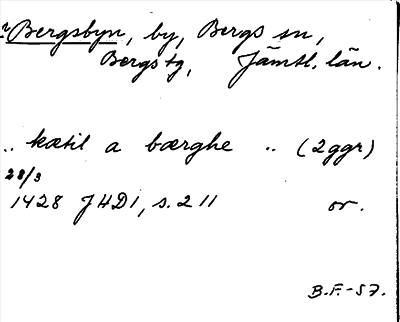 Bergsbyn, by, Bergs sn,
Bergs tg, Jämtl. län.
.. kætil a bærghe .. (2ggr)
28/3
1428 JHD1, s. 211 or.
B.F.-57.